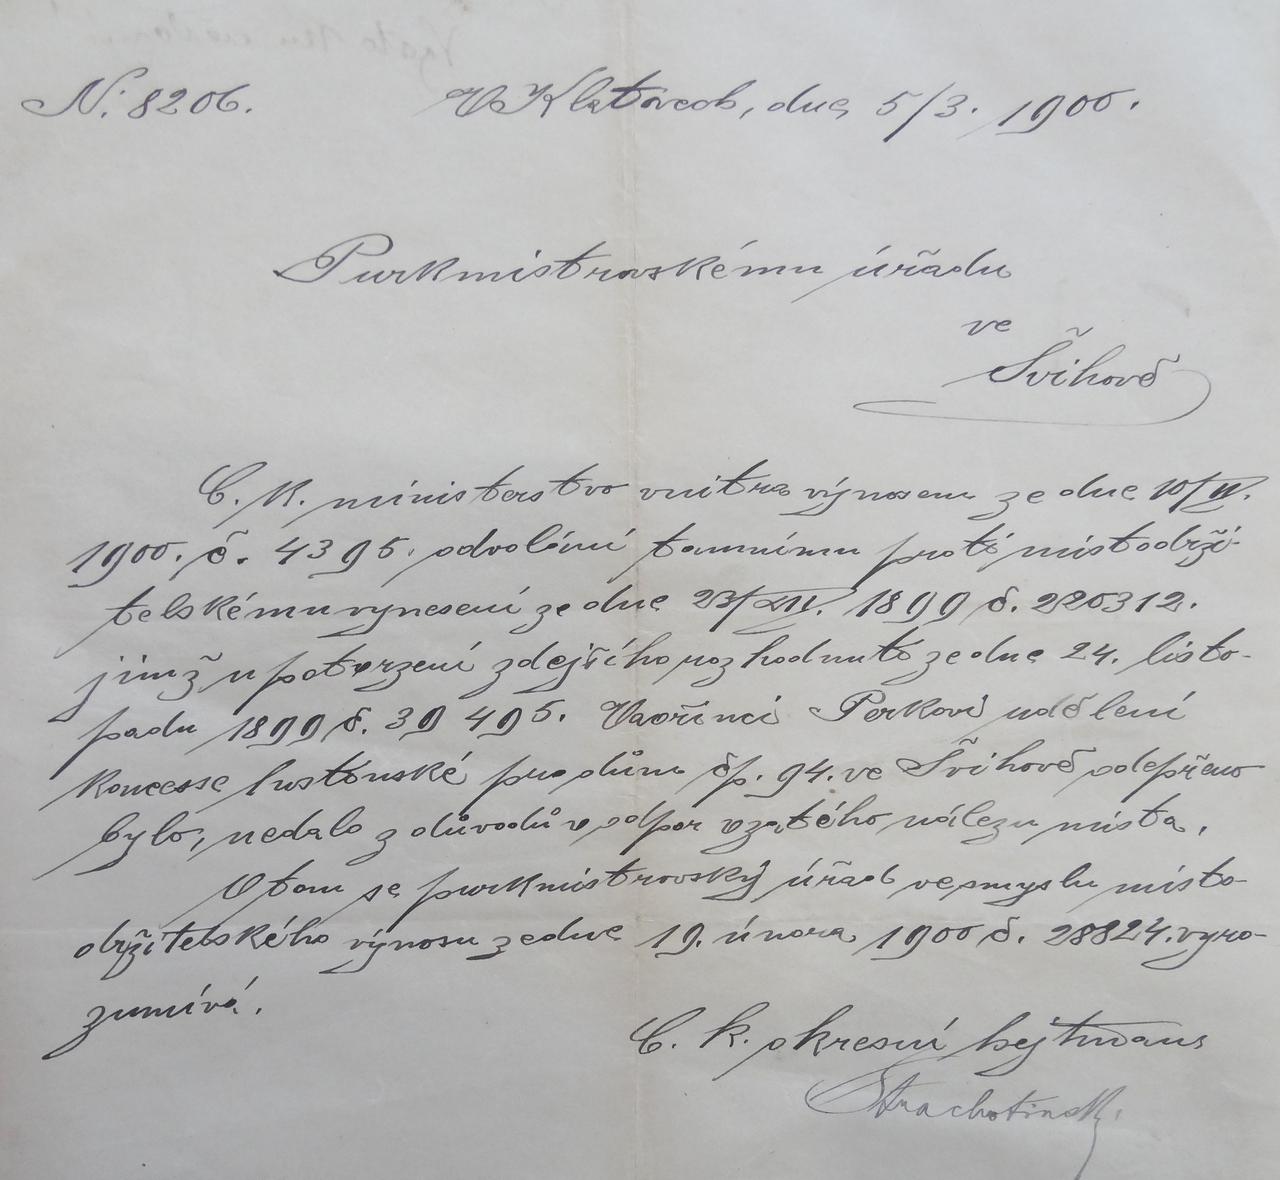 N. 8206. V Klatovech, dne 5/3. 1900.
Purkmistrovskému úřadu
ve
Švihově
C. k. ministerstvo vnitra výnosem ze dne 10/II.
1900. č. 4395. odvolání tamnímu proti místodrži-
telskému vynesení ze dne 23/XII. 1899 č. 220312.
jímž u potvrzení zdejšího rozhodnutí ze dne 24. listo-
padu 1899 č. 39495. Vavřinci Perkovi udělení
koncesse hostinské pro dům čp. 94. ve Švihově odepřeno
bylo, nedalo z důvodů v odpor vzatého nálezu místa.
O tom se purkmistrovský úřad ve smyslu místo-
držitelského výnosu ze dne 19. února 1900 č. 28824. vyro-
zumívá.
C. k. okresní hejtman:
Strachotinský